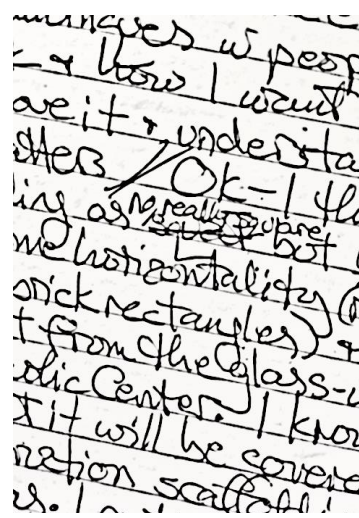 w peop
- & how I want
ave it & understa
tters / OK - I th
ing as no, really square but
me horizontality (
brick rectangles) &
t from the glass-w
olic Center. I know
t it will be covere
nation scaffoldi